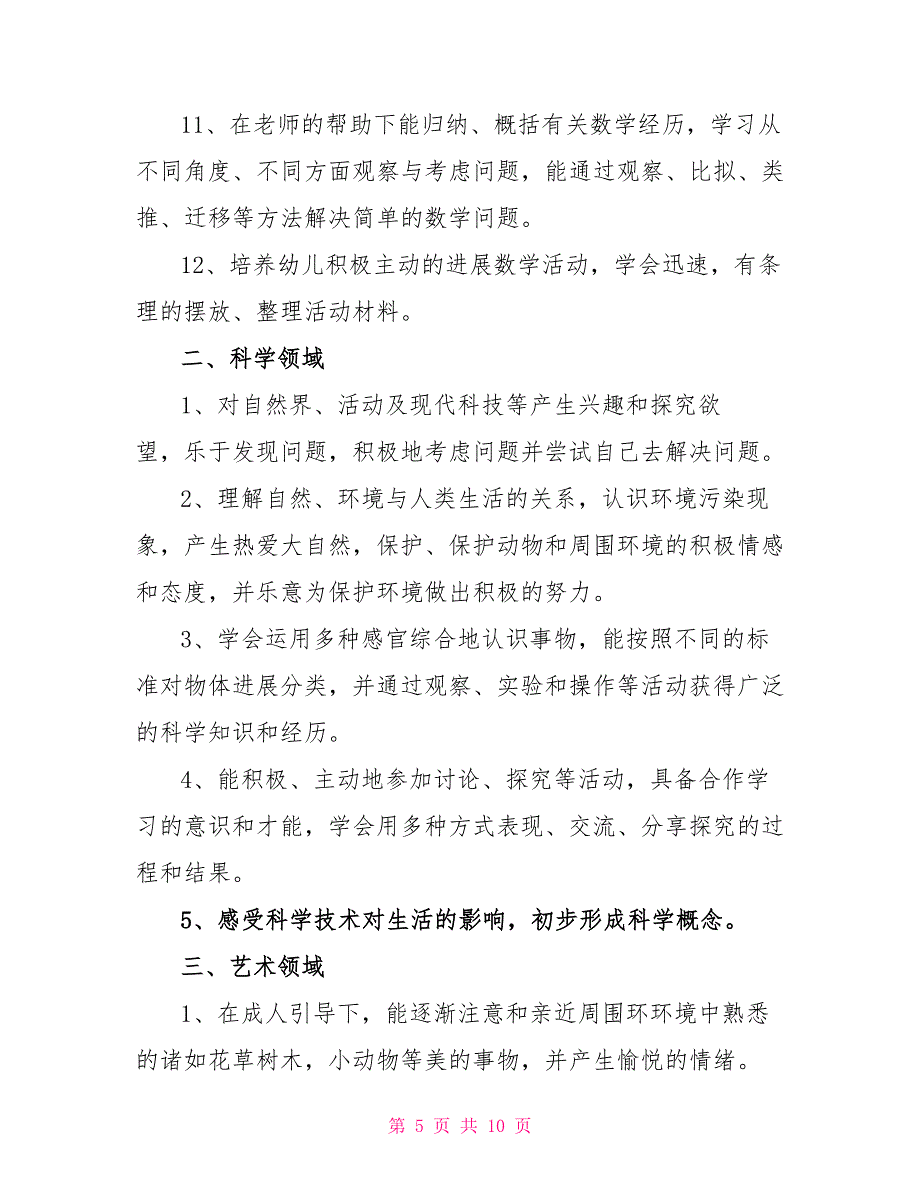 11、在老师的帮助下能归纳、概括有关数学经历，学习从
不同角度、不同方面观察与考虑问题，能通过观察、比拟、类
推、迁移等方法解决简单的数学问题。
12、培养幼儿积极主动的进展数学活动，学会迅速，有条
理的摆放、整理活动材料。
二、科学领域
1、对自然界、活动及现代科技等产生兴趣和探究欲
望，乐于发现问题，积极地考虑问题并尝试自己去解决问题。
2、理解自然、环境与人类生活的关系，认识环境污染现
象，产生热爱大自然，保护、保护动物和周围环境的积极情感
和态度，并乐意为保护环境做出积极的努力。
3、学会运用多种感官综合地认识事物，能按照不同的标
准对物体进展分类，并通过观察、实验和操作等活动获得广泛
的科学知识和经历。
4、能积极、主动地参加讨论、探究等活动，具备合作学
习的意识和才能，学会用多种方式表现、交流、分享探究的过
程和结果。
5、感受科学技术对生活的影响，初步形成科学概念。
三、艺术领域
1、在成人引导下，能逐渐注意和亲近周围环环境中熟悉
的诸如花草树木，小动物等美的事物，并产生愉悦的情绪。
第 5 页 共 10 页